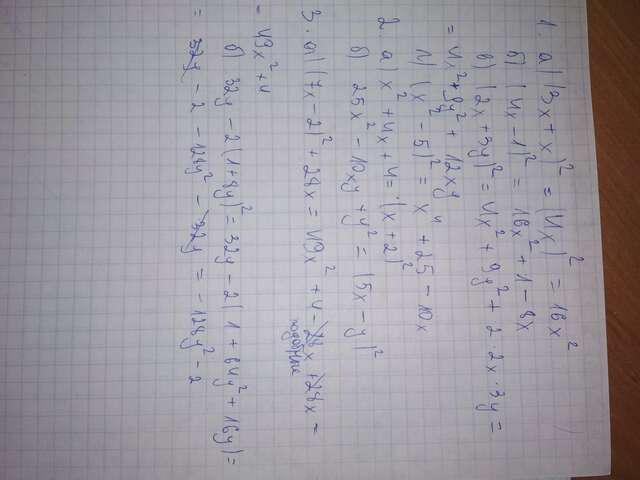 1. а) (3x + x)² = (4x)² = 16x²
б) (4x - 1)² = 16x² + 1 - 8x
в) (2x + 3y)² = 4x² + 9y² + 2 · 2x · 3y =
= 4x² + 9y² + 12xy
г) (x² - 5)² = x⁴ + 25 - 10x
2. а) x² + 4x + 4 = (x + 2)²
б) 25x² - 10xy + y² = (5x - y)²
3. а) (7x - 2)² + 28x = 49x² + 4 - 28x + 28x =
подобные
= 49x² + 4
б) 32y - 2(1 + 8y)² = 32y - 2(1 + 64y² + 16y) =
= 32y - 2 - 128y² - 32y = -128y² - 2